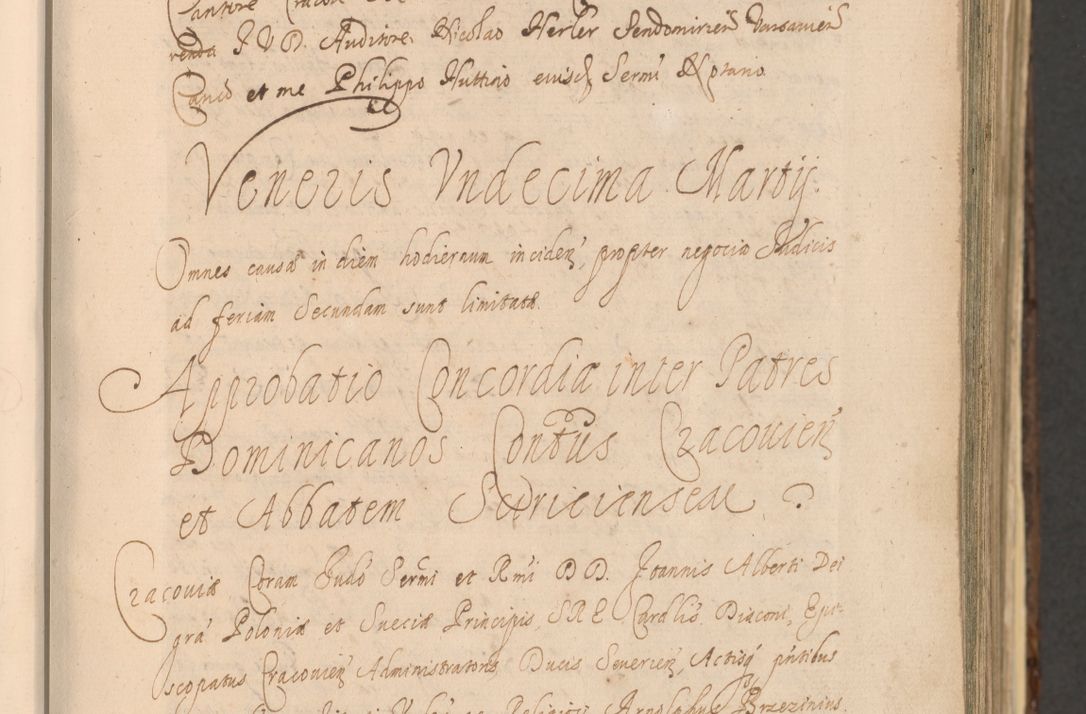 Cantore
renda I V D. Auditore, Nicolao Herler Sendomirien Varsavien
Canco et me Philippo Huttinio eiusd Sermi Notario.
Veneris Vndecima Martij.
Omnes causæ in diem hodiernum inciden, propter negocia Judicis
ad feriam Secundam sunt limitatæ.
Approbatio Concordiæ inter Patres
Dominicanos Contus Cracouien
et Abbatem
Cracouiæ Coram Judo Sermi et Rmi D D. Joannis Alberti Dei
gra Poloniæ et Sueciæ Principis, S R E Cardlis Diaconi, Epi-
scopatus Cracouien Administratoris Ducis Seuerien, Actisq pntibus
Religiosi Arnolphus Brzezinius.